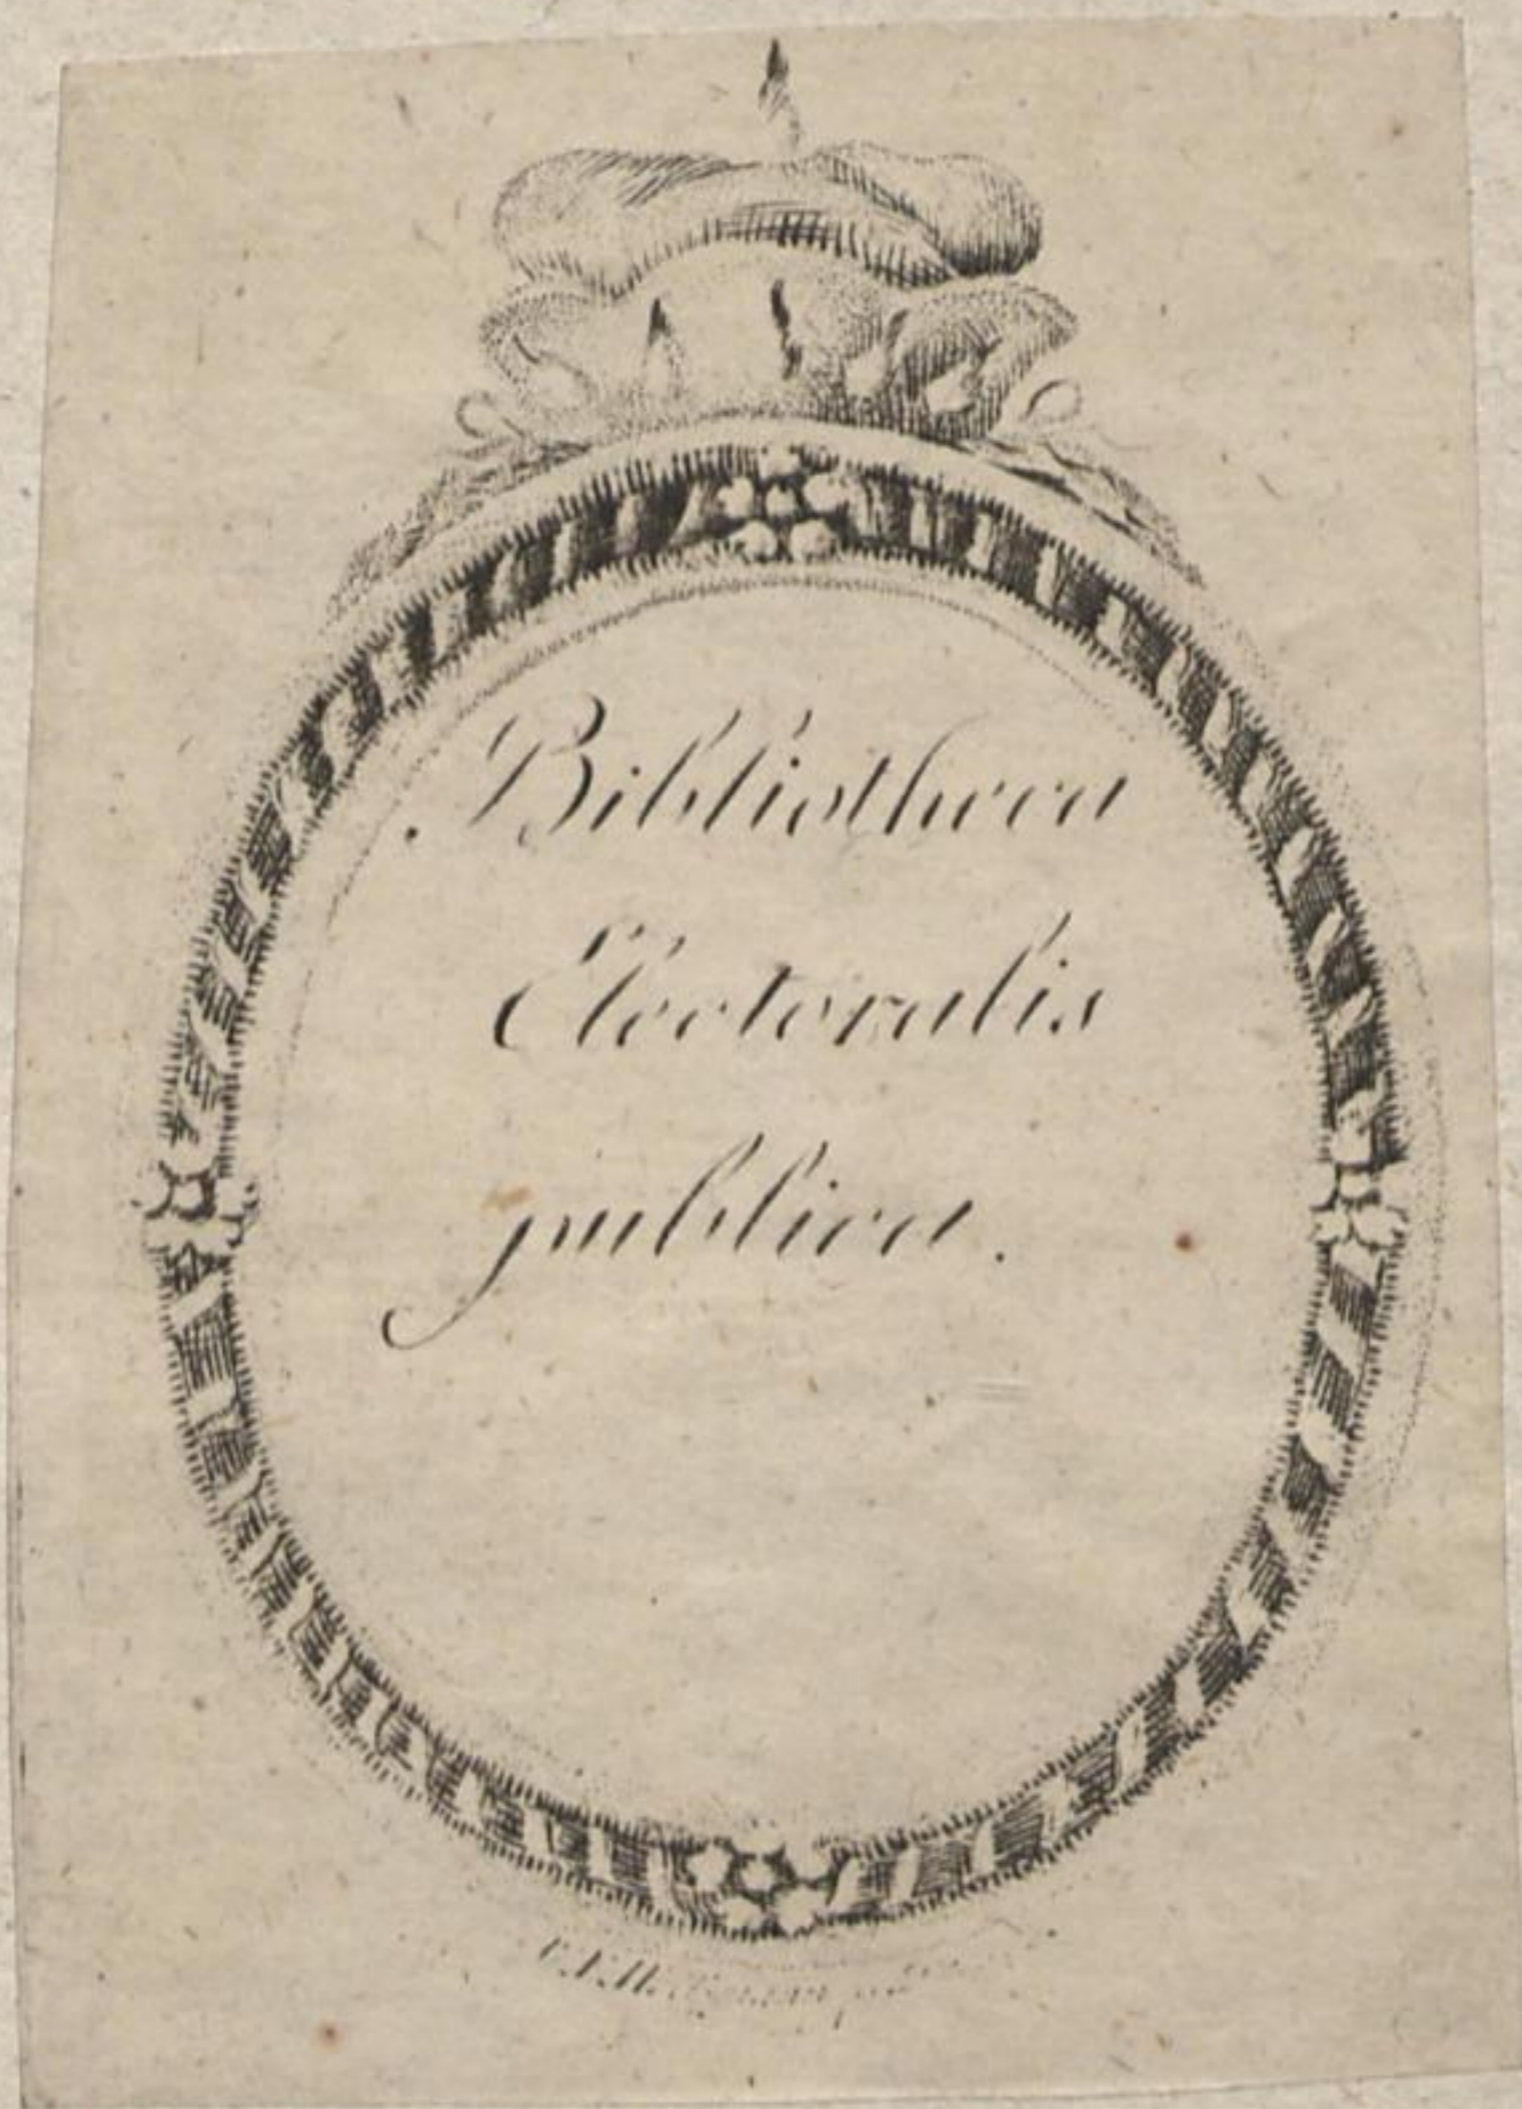 Bibliotheca
Electoralis
publica.